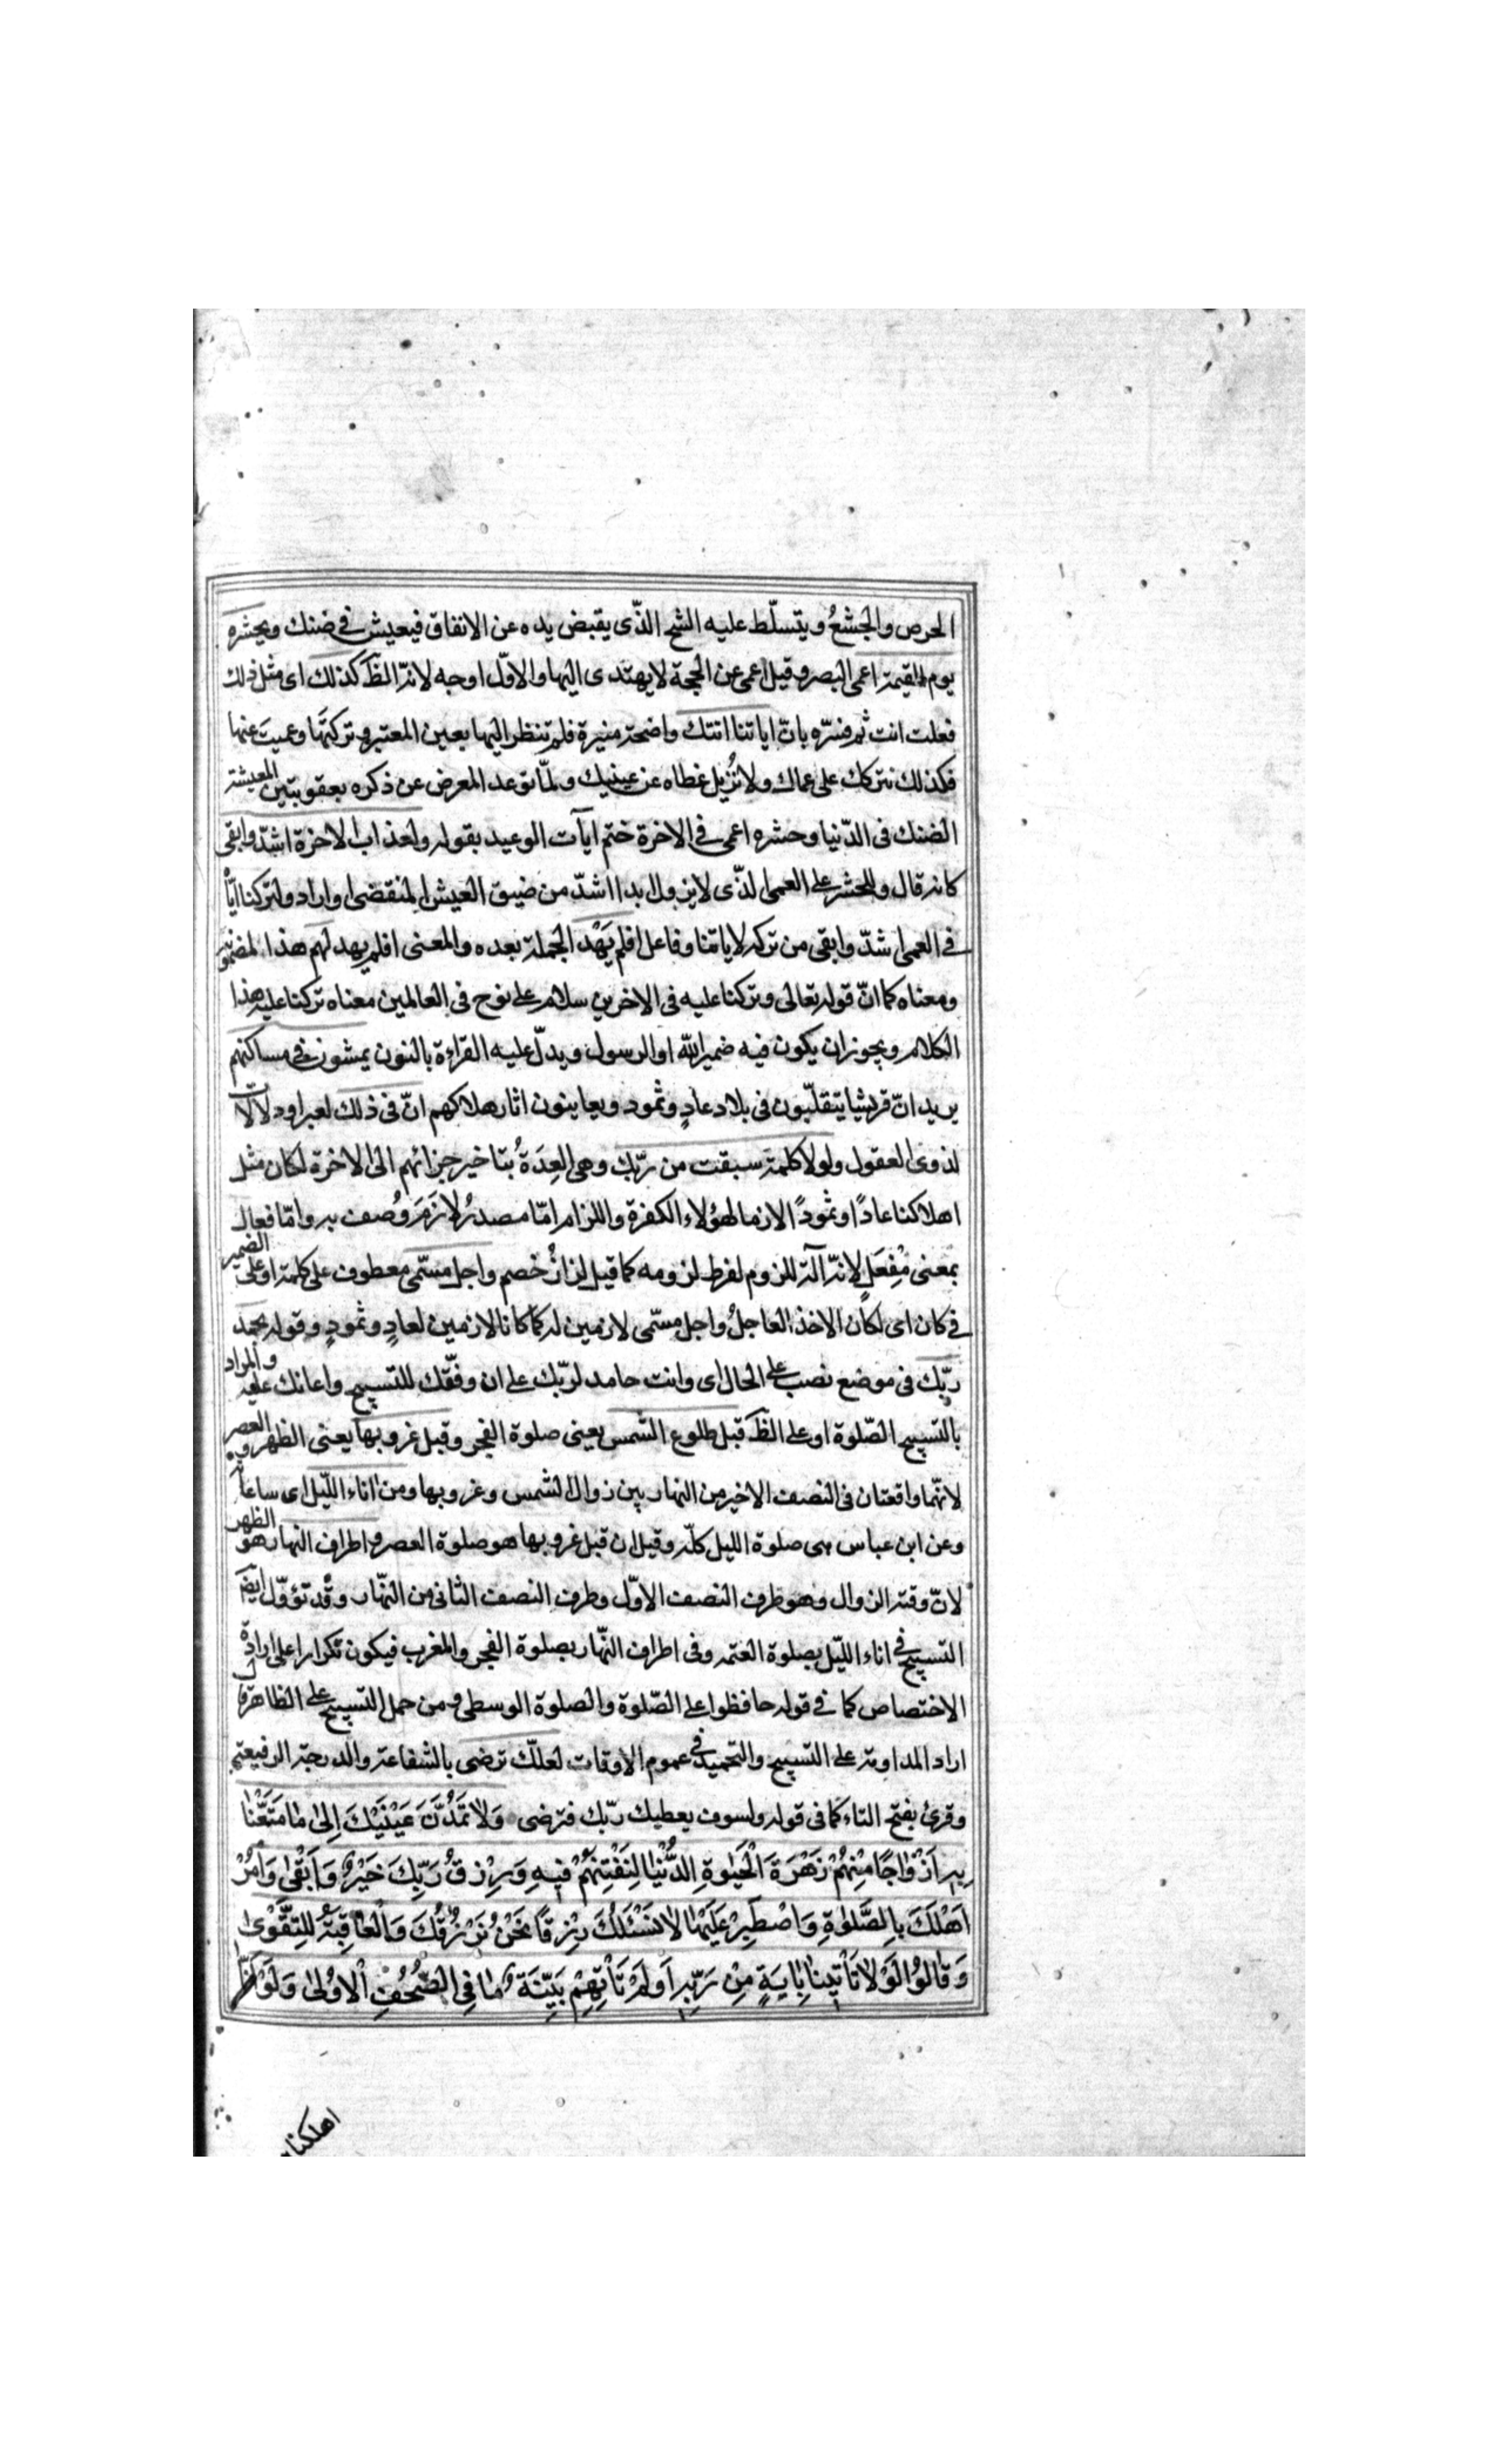 الحرص والجشعُ ويتسلّط عليه الشح الذّى يقبض يده عن الانفاق فيعيش فى ضنك ويحشره
يوم القيمة اعمى البصر وقيل اعمى عن الحجة لا يهتدى اليها والاوّل اوجه لانه الظَ كذلك اى مثل ذلك
فعلت انت ثم فسّره بانّ اياتنا اتتك واضحة منيرة فلم تنظر اليها بعين المعتبر وتركتَها وعميتَ عنها
فكذلك نتركك على عماك ولا نُزيل غطاه عن عينيك ولمّا توعد المعرض عن ذكره بعقوبتين المعيشة
الضنك فى الدّنيا وحشره اعمى فى الاخرة ختم ايآت الوعيد بقوله ولعذاب الاخرة اشدّ وابقى
كانه قال وللحشر على العمى الذّى لا يزول ابدا اشدّ من ضيق العيش المنقضى او اراد ولتركنا ايّاه
فى العمى اشدّ وابقى من تركه لاياتنا وفاعل افلم يَهْد الجملة بعده والمعنى افلم يهد لهم هذا لمضمونه
ومعناه كما انّ قوله تعالى وتركنا عليه فى الاخرين سلام على نوح فى العالمين معناه تركنا عليه هذا
الكلام ويجوز ان يكون فيه ضمير الله او الرسول ويدلّ عليه القراءة بالنون يمشون فى مساكنهم
يريد انّ قريشا يتقلّبون فى بلاد عادٍ وثمود ويعاينون اثار هلاكهم انّ فى ذلك لعبرا ودلالات
لذوى العقول ولولا كلمة سبقت من ربّك وهى العِدَةُ بتاخير جزائهم الى الاخرة لكان مثل
اهلاكنا عادًا وثمودً الازما لهؤلاء الكفرة واللزام امّا مصدرُ لازَمَ وُصف به وامّا فعال
بمعنى مِفْعَلٍ لانه آلة اللزوم لفرط لزومه كما قيل لزازُ خصم واجل مسمّى معطوف على كلمة او على الضمير
فى كان اى لكان الاخذ العاجلُ واجل مسمّى لازمين له كما كانا لازمين لعادٍ وثمودٍ وقوله بحمد
ربّك فى موضع نصب على الحال اى وانت حامد لربّك على ان وفّقك للتسبيح واعانك عليه والمراد
بالتسبيح الصّلوة او على الظَ قبل طلوع الشمس يعنى صلوة الفجر وقبل غروبها يعنى الظهر والعصر
لانّهما واقعتان فى النصف الاخير من النهار بين زوال الشمس وغروبها ومن اناء اللّيل اى ساعاته
وعن ابن عباس هى صلوة الليل كلّه وقيل ان قبل غروبها هو صلوة العصر واطراف النهار هو الظهر
لانّ وقته الزوال وهو طرف النصف الاوّل وطرف النصف الثانى من النّهار وقد تؤوّل ايضَ
التسبيح فى اناء اللّيل بصلوة العتمه وفى اطراف النّهار بصلوة الفجر والمغرب فيكون تكرارا على ارادة
الاختصاص كما فى قوله حافظوا على الصّلوة والصلوة الوسطى ومن حمل التسبيح على الظاهر قال
اراد المداومة على التسبيح والتحميد فى عموم الاوقات لعلّك ترضى بالشفاعة والدرجة الرفيعة
وقرئ بفتح التاء كما فى قوله ولسوف يعطيك ربّك فترضى وَلَا تَمُدَّنَّ عَيْنَيْكَ اِلىٰ مٰا مَتَّعْنٰا
بِهِ اَزْوٰاجًا مِنْهُمْ زَهْرَةَ الْحَيٰوةِ الدُّنْيٰا لِنَفْتِنَهُمْ فيهِ وَرِزْقُ رَبِّكَ خَيْرٌ وَاَبْقٰى وَأْمُرْ
اَهْلَكَ بِالصَّلٰوةِ وَاصْطَبِرْ عَلَيْهٰا لٰا نَسْئَلُكَ رِزْقًا نَحْنُ نَرْزُقُكَ وَالْعٰاقِبَةُ لِلتَّقْوىٰ
وَقٰالُوا لَوْلٰا يَأْتينٰا بِاٰيَةٍ مِنْ رَبِّهِ اَوَلَمْ تَأْتِهِمْ بَيِّنَةُ مٰا فِى الصُّحُفِ الْاُولٰى وَلَوْ اَنّٰا
اهلكناهم